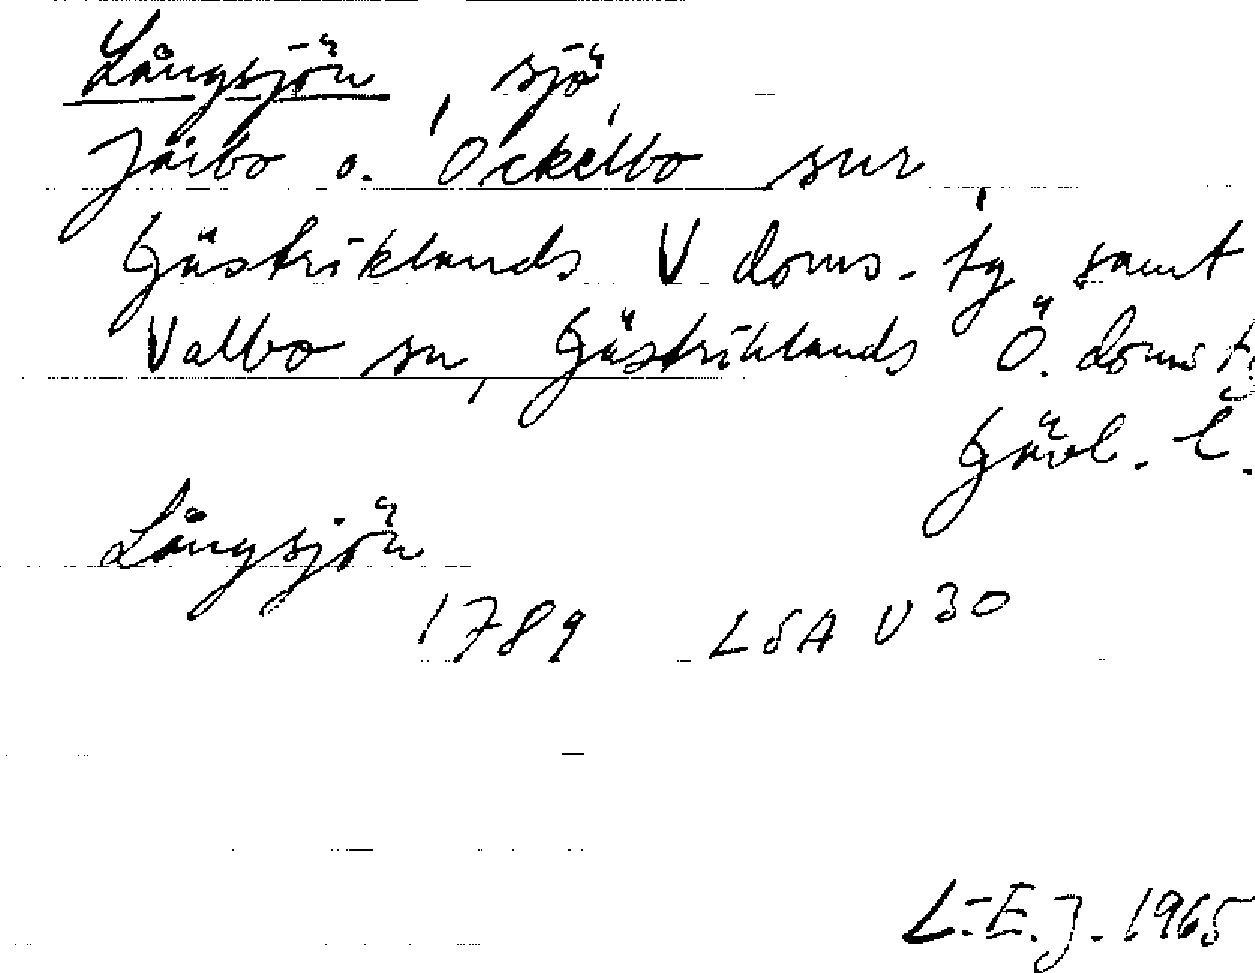 Långsjön, sjö,
Järbo o. Ockelbo snr,
Gästriklands V doms. tg samt
Valbo sn, Gästriklands Ö. doms tg
Gävl. l.
Långsjön
1789 LSA U30
L-E.J. 1965